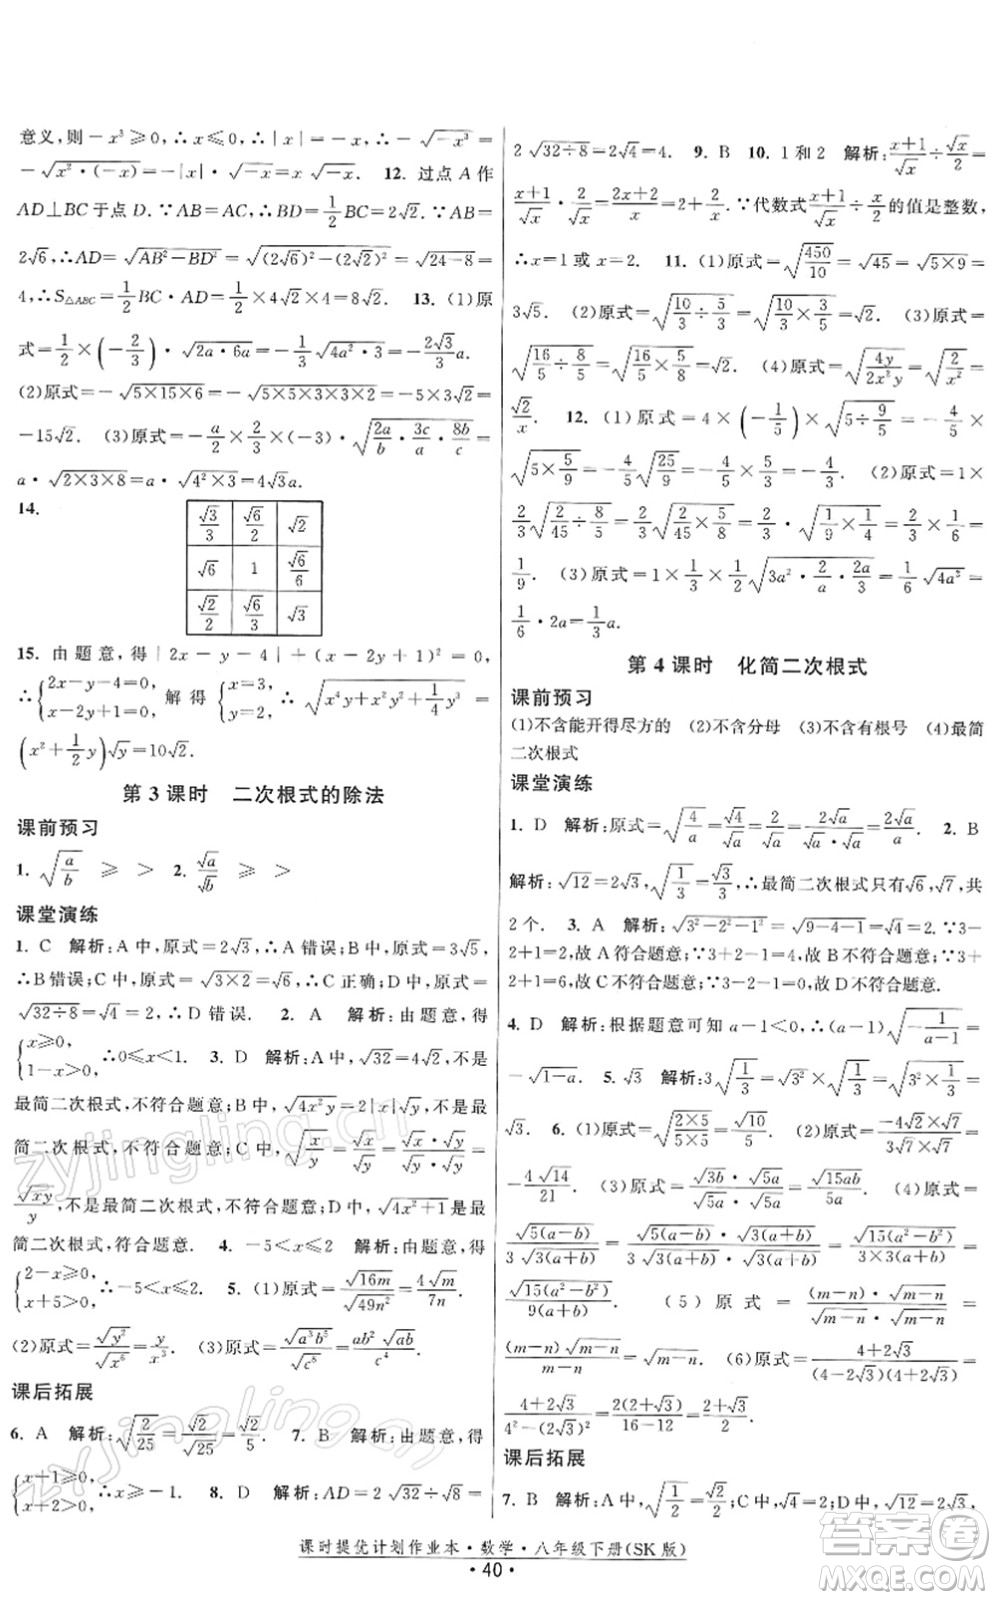 意义,则-x³≥0,∴x≤0,∴|x|=-x,∴-√(-x³)=
-√(x²·(-x))=x√(-x). 12. 过点A作
AD⊥BC于点D.∵AB=AC,∴BD=1/2BC=2√2.∵AB=
2√6,∴AD=√(AB²-BD²)=√((2√6)²-(2√2)²)=√(24-8)=
4,∴S△ABC=1/2BC·AD=1/2×4√2×4=8√2. 13. (1)原
式=1/2×(-2/3)·√(2a·6a)=-1/3√(4a²·3)=-(2√3/3)a.
(2)原式=-√(5×15×6)=-√(5×5×3×3×2)=-5×3√2=
-15√2. (3)原式=-a/2×2/3×(-3)·√(2a/b·3c/a·8b/c)=
a·√(2×3×8)=a·√(4²×3)=4√3a.
14.
√3/3 √6/2 √2
√6 1 √6/6
√2/2 √6/3 √3
15. 由题意,得|2x-y-4|+(x-2y+1)²=0,
∴{2x-y-4=0, x-2y+1=0, 解得{x=3, y=2. ∴√(x⁴y+x²y²+1/4y³)=
(x²+1/2y)√y=10√2.
第3课时 二次根式的除法
课前预习
1. √(a/b) ≥ > 2. √a/√b ≥ >
课堂演练
1. C 解析:A中,原式=2√3,∴A错误;B中,原式=3√5,
∴B错误;C中,原式=√(3×2)=√6,∴C正确;D中,原式=
√(32÷8)=√4=2,∴D错误. 2. A 解析:由题意,得
{x≥0, 1-x>0, ∴0≤x<1. 3. D 解析:A中,√32=4√2,不是
最简二次根式,不符合题意;B中,√(4x²y)=2|x|√y,不是最
简二次根式,不符合题意;C中,√(x/y)=√x/√y=√x·√y/√y·√y=
√xy/y,不是最简二次根式,不符合题意;D中,√(4x²+1)是最
简二次根式,符合题意. 4. -5<x≤2 解析:由题意,得
{2-x≥0, x+5>0, ∴-5<x≤2. 5. (1)原式=√16m/√49n²=4√m/7n.
(2)原式=√y²/√x⁶=y/x³. (3)原式=√(a³b⁵)/√c⁸=ab²√ab/c⁴.
课后拓展
6. A 解析:√(2/25)=√2/√25=√2/5. 7. B 解析:由题意,得
{x+1≥0, x+2>0, ∴x≥-1. 8. D 解析:AD=2√32÷√8=
2√(32÷8)=2√4=4. 9. B 10. 1和2 解析:(x+1)/√x÷√x/2=
(x+1)/√x·2/√x=(2x+2)/x=2+2/x.∵代数式(x+1)/√x÷√x/2的值是整数,
∴x=1或x=2. 11. (1)原式=√(450/10)=√45=√(5×9)=
3√5. (2)原式=√(10/3÷5/3)=√(10/3×3/5)=√2. (3)原式=
√(16/5÷8/5)=√(16/5×5/8)=√2. (4)原式=√(4y/2x²y)=√(2/x²)=
√2/x. 12. (1)原式=4×(-1/5)×√(5÷9/5)=-4/5×
√(5×5/9)=-4/5√(25/9)=-4/5×5/3=-4/3. (2)原式=1×
2/3√(2/5÷8/5)=2/3√(2/5×5/8)=2/3·√(1/9×1/4)=2/3×1/3×1/2=
1/9. (3)原式=1×1/3×1/2√(3a²·2/a·2a/3)=1/6√(4a²)=
1/6·2a=1/3a.
第4课时 化简二次根式
课前预习
(1)不含能开得尽方的 (2)不含分母 (3)不含有根号 (4)最简
二次根式
课堂演练
1. D 解析:原式=√(4/a)=√4/√a=2/√a=2√a/√a·√a=2√a/a. 2. B
解析:√12=2√3,√(1/3)=1/√3=√3/3,∴最简二次根式只有√6,√7,共
2个. 3. A 解析:√(3²-2²-1²)=√(9-4-1)=√4=2.∵3-
2+1=2,故A符合题意;∵
2+1=6,故D不符合题意.
4. D 解析:根据题意可知a-1<0,∴(a-1)√(-1/(a-1))=
-√(1-a). 5. √3 解析:3√(1/3)=√3²×√(1/3)=√(3²×1/3)=
√3. 6. (1)原式=√(2×5/5×5)=√10/5. (2)原式=-4√2×√7/3√7×√7=
-4√14/21. (3)原式=√3b·√5a/√5a·√5a=√15ab/5a. (4)原式=
√5(a-b)/3√3(a+b)=√5(a-b)·√3(a+b)/3√3(a+b)·√3(a+b)=√15(a²-b²)/3×3(a+b)=
√15(a²-b²)/9(a+b). (5)原式=(m-n)·√(m-n)/√(m-n)·√(m-n)=
(m-n)√(m-n)/(m-n)=√(m-n). (6)原式=(4+2√3)/(4-2√3)(4+2√3)=
(4+2√3)/(4²-(2√3)²)=(4+2√3)/(16-12)=(2+√3)/2.
课后拓展
7. B 解析:√(1/3)=√3/3,√20=2√5,√(1/2)=√2/2,√12=2√3,
课时提优计划作业本·数学·八年级下册(SK版)
·40·
zyjingling.cn
zyjingling.cn
答案圈
MXQE.COM